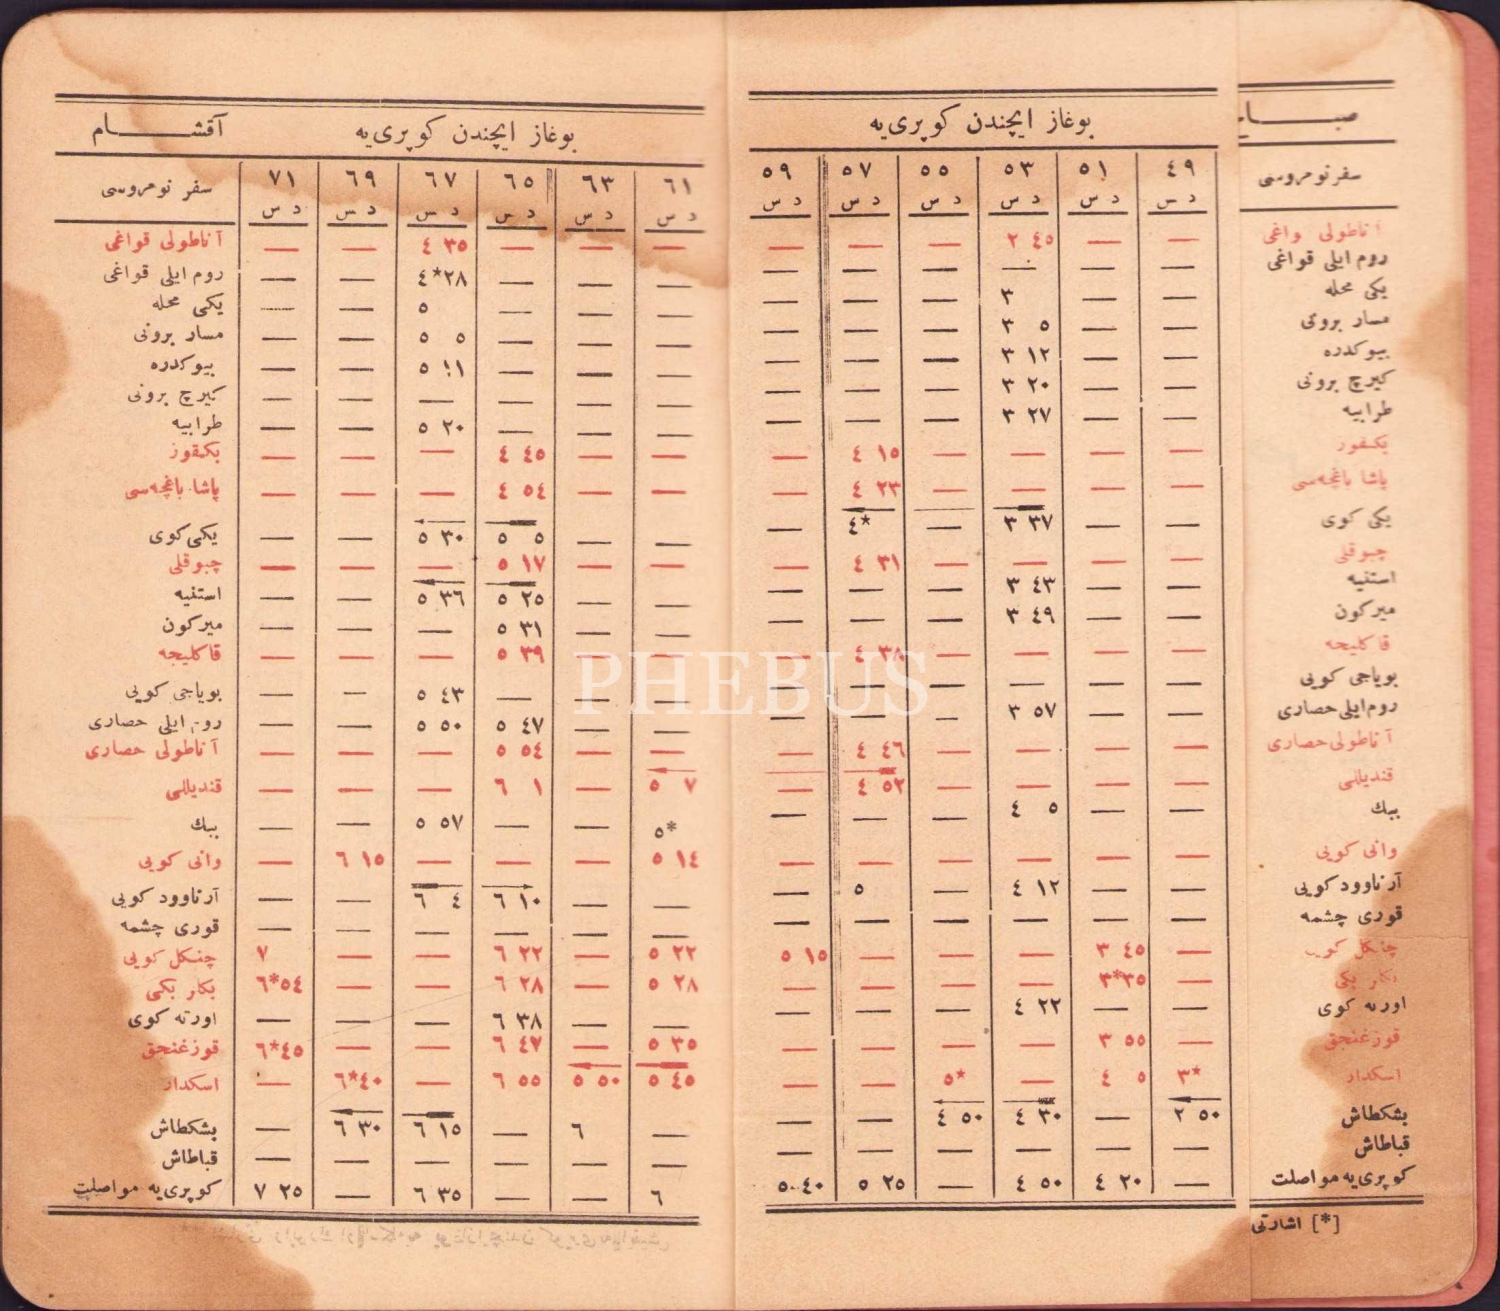 بوغاز ایچندن كوپری‌یه
سفر نومروسی ٤٩ ٥١ ٥٣ ٥٥ ٥٧ ٥٩
د س د س د س د س د س د س
آناطولی قواغی — — ٢ ٤٥ — — —
روم ایلی قواغی — — — — — —
یكی محله — — ٣ — — —
مسار برونی — — ٣ ٥ — — —
بیوكدره — — ٣ ١٢ — — —
كیرچ برونی — — ٣ ٢٠ — — —
طرابیه — — ٣ ٢٧ — — —
بكقوز — — — — ٤ ١٥ —
پاشا باغچه‌سی — — — — ٤ ٢٣ —
یكی كوی — — ٣ ٣٧ — ٤* —
چبوقلی — — — — ٤ ٣١ —
استنیه — — ٣ ٤٣ — — —
میركون — — ٣ ٤٩ — — —
قاكلیجه — — — — ٤ ٣٨ —
بویاجی كویی — — — — — —
روم ایلی حصاری — — ٣ ٥٧ — — —
آناطولی حصاری — — — — ٤ ٤٦ —
قندیللی — — — — ٤ ٥٢ —
ببك — — ٤ ٥ — — —
وانی كویی — — — — — —
آرناوود كویی — — ٤ ١٢ — ٥ —
قوری چشمه — — — — — —
چنكل كویی — ٣ ٤٥ — — — ٥ ١٥
بكلر بكی — ٣*٣٥ — — — —
اورته كوی — — ٤ ٢٢ — — —
قوزغنجق — ٣ ٥٥ — — — —
اسكدار ٣* ٤ ٥ — ٥* — —
بشكطاش ٢ ٥٠ — ٤ ٣٠ ٤ ٥٠ — —
قباطاش — — — — — —
كوپری‌یه مواصلت — ٤ ٢٠ ٤ ٥٠ — ٥ ٢٥ ٥ ٤٠
[*] اشارتی
آقشام بوغاز ایچندن كوپری‌یه
سفر نومروسی ٧١ ٦٩ ٦٧ ٦٥ ٦٣ ٦١
د س د س د س د س د س د س
آناطولی قواغی — — ٤ ٣٥ — — —
روم ایلی قواغی — — ٤*٢٨ — — —
یكی محله — — ٥ — — —
مسار برونی — — ٥ ٥ — — —
بیوكدره — — ٥ ١١ — — —
كیرچ برونی — — — — — —
طرابیه — — ٥ ٢٠ — — —
بكقوز — — — ٤ ٤٥ — —
پاشا باغچه‌سی — — — ٤ ٥٤ — —
یكی كوی — — ٥ ٣٠ ٥ ٥ — —
چبوقلی — — — ٥ ١٧ — —
استنیه — — ٥ ٣٦ ٥ ٢٥ — —
میركون — — — ٥ ٣١ — —
قاكلیجه — — — ٥ ٣٩ — —
بویاجی كویی — — ٥ ٤٣ — — —
روم ایلی حصاری — — ٥ ٥٠ ٥ ٤٧ — —
آناطولی حصاری — — — ٥ ٥٤ — —
قندیللی — — — ٦ ١ — ٥ ٧
ببك — — ٥ ٥٧ — — ٥*
وانی كویی — ٦ ١٥ — — — ٥ ١٤
آرناوود كویی — — ٦ ٤ ٦ ١٠ — —
قوری چشمه — — — — — —
چنكل كویی ٧ — — ٦ ٢٢ — ٥ ٢٢
بكلر بكی ٦*٥٤ — — ٦ ٢٨ — ٥ ٢٨
اورته كوی — — — ٦ ٣٨ — —
قوزغنجق ٦*٤٥ — — ٦ ٤٧ — ٥ ٣٥
اسكدار — ٦*٤٠ — ٦ ٥٥ ٥ ٥٠ ٥ ٤٥
بشكطاش — ٦ ٣٠ ٦ ١٥ — ٦ —
قباطاش — — — — — —
كوپری‌یه مواصلت ٧ ٢٥ — ٦ ٣٥ — — ٦
PHEBUS